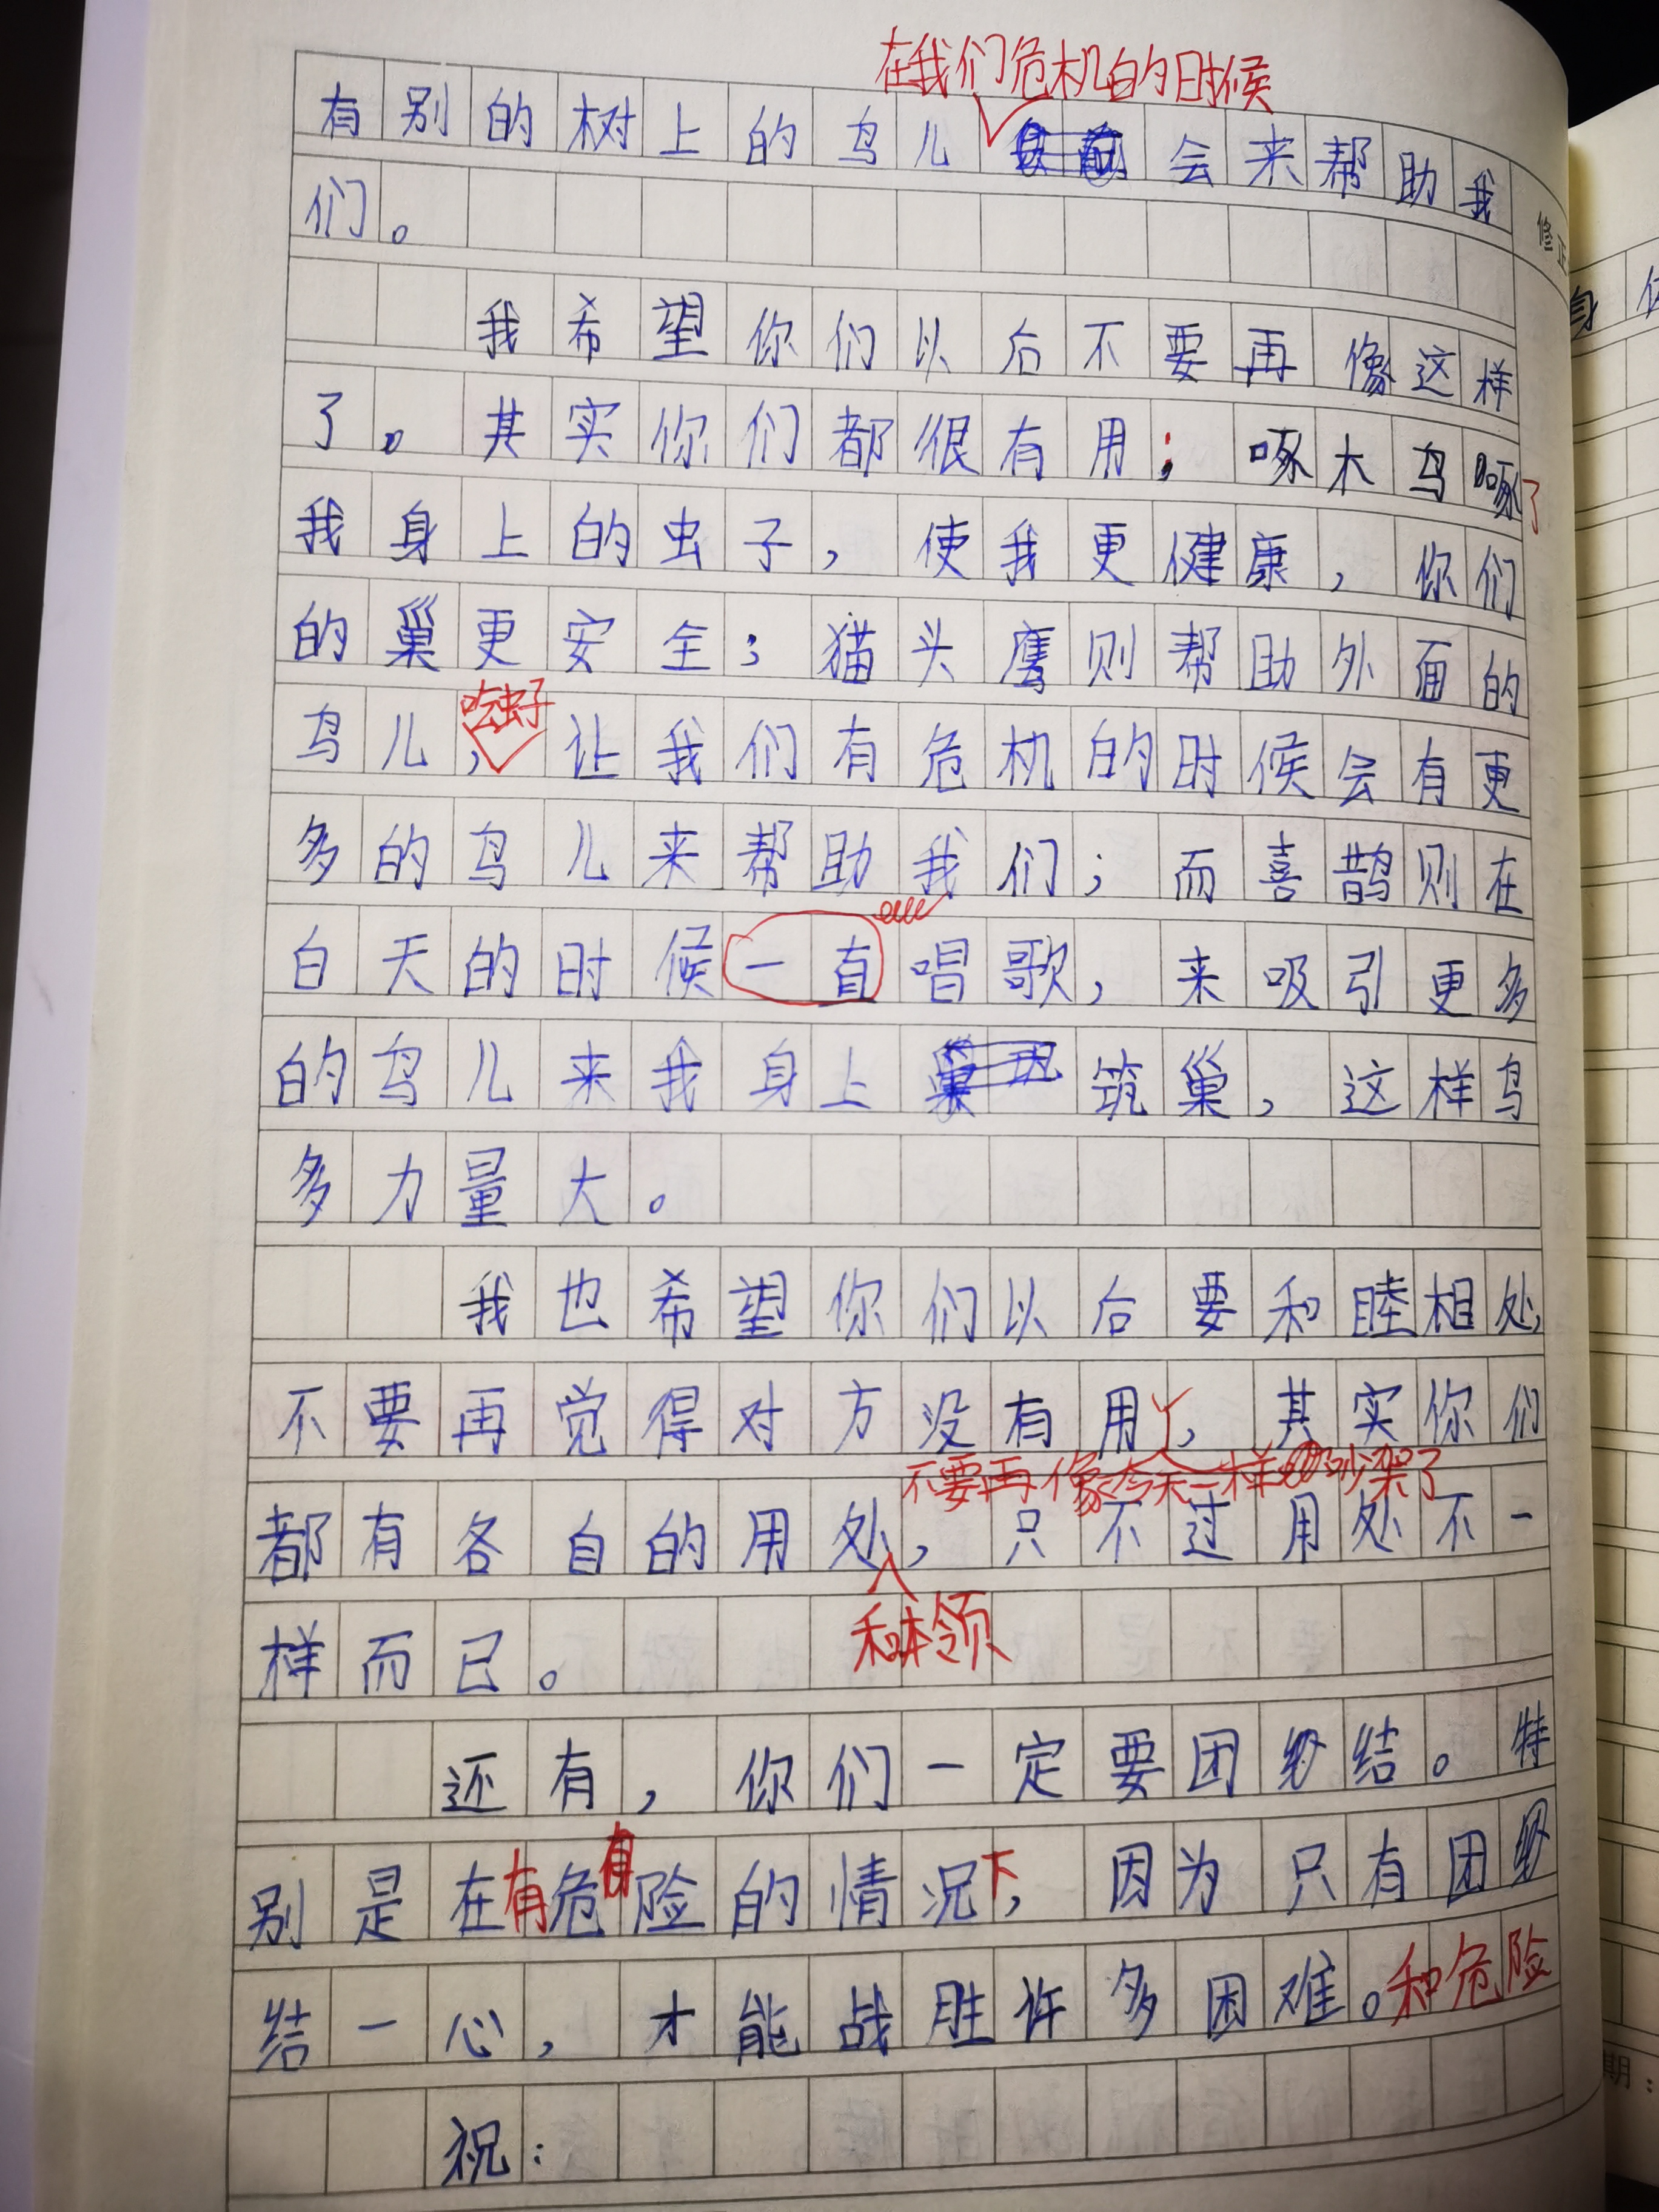 在我们危机的时候
有别的树上的鸟儿会来帮助我
们。
修正
我希望你们以后不要再像这样
了。其实你们都很有用；啄木鸟啄了
我身上的虫子，使我更健康，你们
的巢更安全；猫头鹰则帮助外面的
吃虫子
鸟儿，让我们有危机的时候会有更
多的鸟儿来帮助我们；而喜鹊则在
白天的时候一直唱歌，来吸引更多
的鸟儿来我身上筑巢，这样鸟
多力量大。
我也希望你们以后要和睦相处，
不要再觉得对方没有用，其实你们
不要再像今天一样吵架了
都有各自的用处，只不过用处不一
和本领
样而已。
还有，你们一定要团结。特
别是在有危险的情况下，因为只有团
结一心，才能战胜许多困难。和危险
祝：
身体
期：